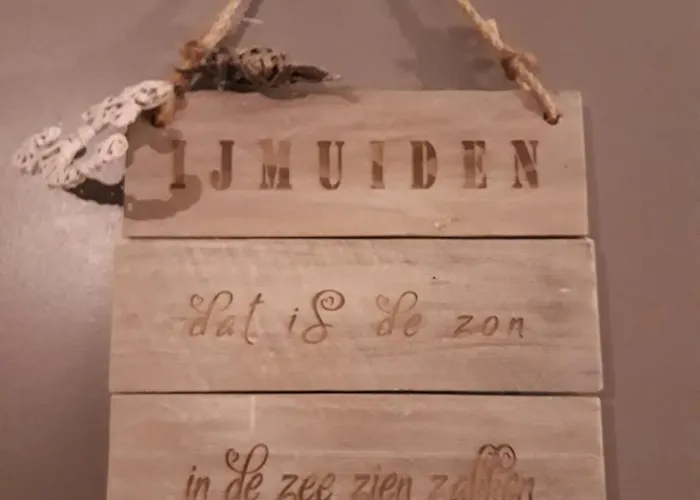 IJMUIDEN
dat is de zon
in de zee zien zakken